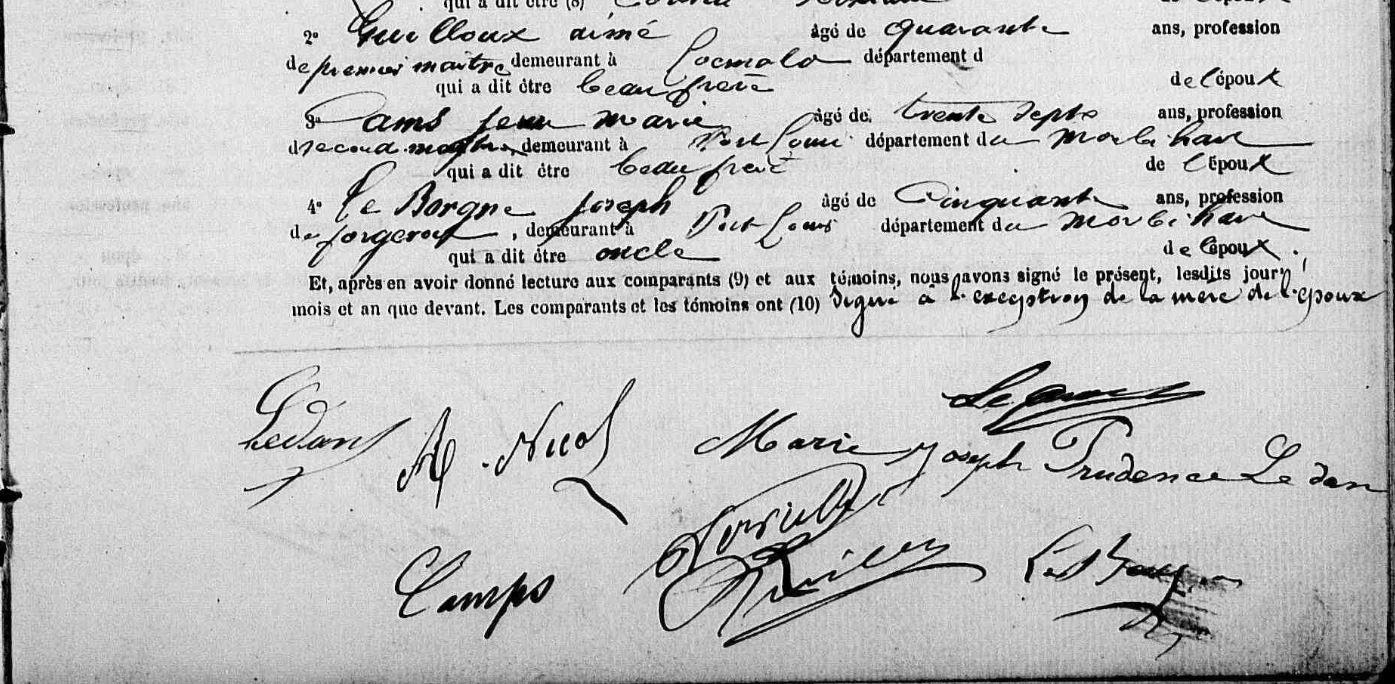 qui a dit être (8)
2° Guilloux aimé âgé de quarante ans, profession
de premier maître demeurant à Locmalo département d
qui a dit être beau frère de l'époux
3° Cams Jean Marie âgé de trente Sept ans, profession
d second maître, demeurant à Port Louis département du Morbihan
qui a dit être beau frère de l'époux
4° Le Borgne Joseph âgé de Cinquante ans, profession
de forgeron, demeurant à Port Louis département du Morbihan
qui a dit être oncle de l'époux.
Et, après en avoir donné lecture aux comparants (9) et aux témoins, nous avons signé le présent, lesdits jour,
mois et an que devant. Les comparants et les témoins ont (10) signé à l'exception de la mère de l'époux
Ledan A. Nicol Marie Joseph Prudence Le dan
Camps